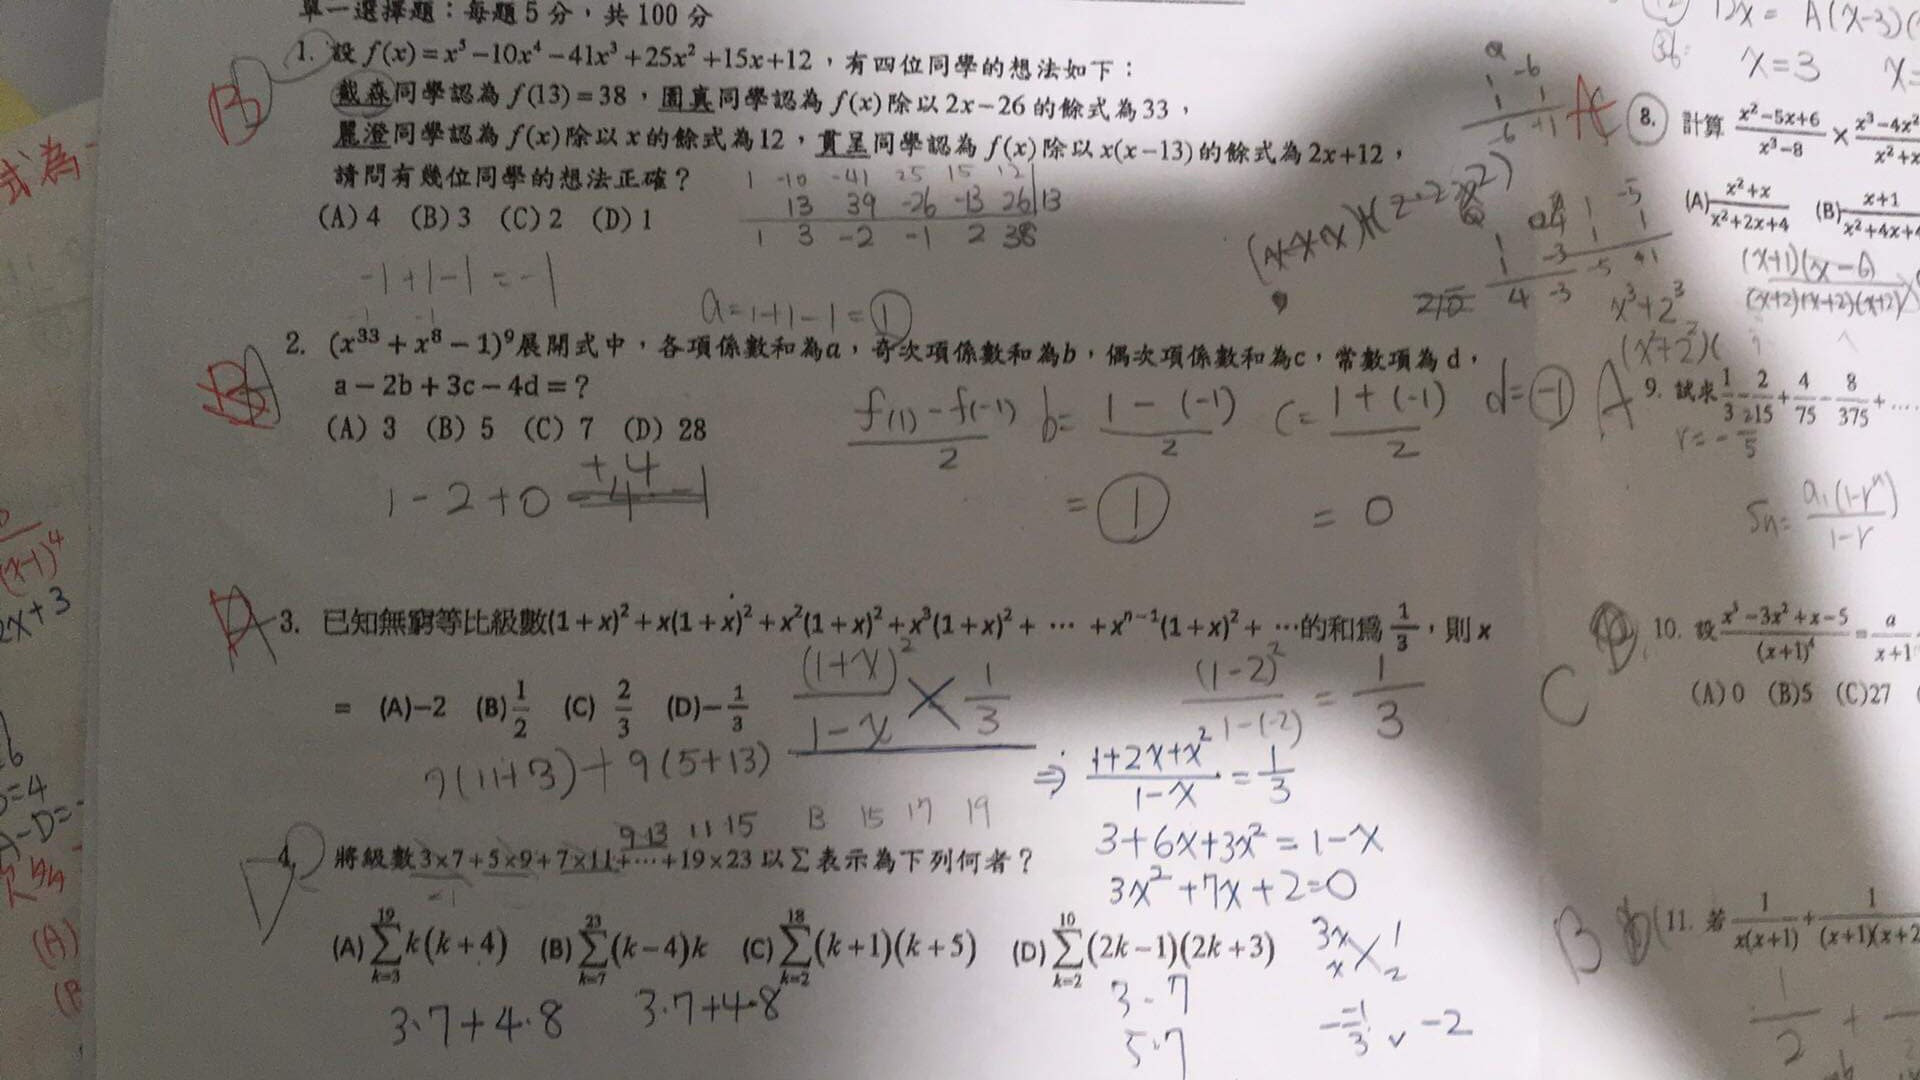 單一選擇題：每題5分，共100分
1. 設 f(x)=x⁵−10x⁴−41x³+25x²+15x+12，有四位同學的想法如下：
戴森同學認為 f(13)=38，圜真同學認為 f(x) 除以 2x−26 的餘式為33，
麗澄同學認為 f(x) 除以 x 的餘式為12，貫呈同學認為 f(x) 除以 x(x−13) 的餘式為 2x+12，
請問有幾位同學的想法正確？
1 -10 -41 25 15 12
13 39 -26 -13 26 13
(A) 4 (B) 3 (C) 2 (D) 1
1 3 -2 -1 2 38
-1+1-1=-1
a=1+1-1=1
2. (x³³+x⁸−1)⁹展開式中，各項係數和為a，奇次項係數和為b，偶次項係數和為c，常數項為 d，
a−2b+3c−4d=？
(A) 3 (B) 5 (C) 7 (D) 28
f(1)-f(-1)/2 b=1-(-1)/2 c=1+(-1)/2 d=-1
1-2+0 +4
=1 =0
A 3. 已知無窮等比級數(1+x)²+x(1+x)²+x²(1+x)²+x³(1+x)²+ ⋯ +xⁿ⁻¹(1+x)²+ ⋯的和為1/3，則x
= (A)−2 (B)1/2 (C) 2/3 (D)−1/3
(1+x)²/1-x 1/3
(1-2)²/1-(-2)=1/3
7(11+3)+9(5+13)
⇒ 1+2x+x²/1-x=1/3
9·13 11·15 13 15 17 19
3+6x+3x²=1-x
3x²+7x+2=0
4. 將級數3×7+5×9+7×11+⋯+19×23 以 Σ 表示為下列何者？
(A) ∑_{k=3}^{19} k(k+4) (B) ∑_{k=7}^{23} (k−4)k (C) ∑_{k=2}^{18} (k+1)(k+5) (D) ∑_{k=2}^{10} (2k−1)(2k+3)
3x 1
x 2
3·7+4·8 3·7+4·8
3·7
5·7
-1/3 -2
12x=A(x-3)(
x=3 x=
8. 計算 x²−5x+6/x³−8 × x³−4x²
(A) x²+x/x²+2x+4 (B) x+1/x²+4x+4
(x+1)(x-6)
(x+2)(x+2)(x+2)
x³+2³
A 9. 試求 1/3−2/15+4/75−8/375+⋯
r=-2/5
Sn=a₁(1-rⁿ)/1-r
10. 設 x³−3x²+x−5/(x+1)⁴=a/x+1
(A) 0 (B)5 (C)27
C
B 11. 若 1/x(x+1)+1/(x+1)(x+2
1/2 +